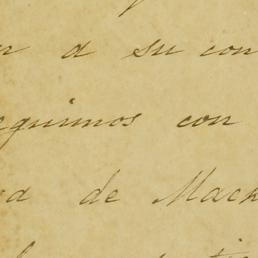 r á su con
eguimos con
da de Mack